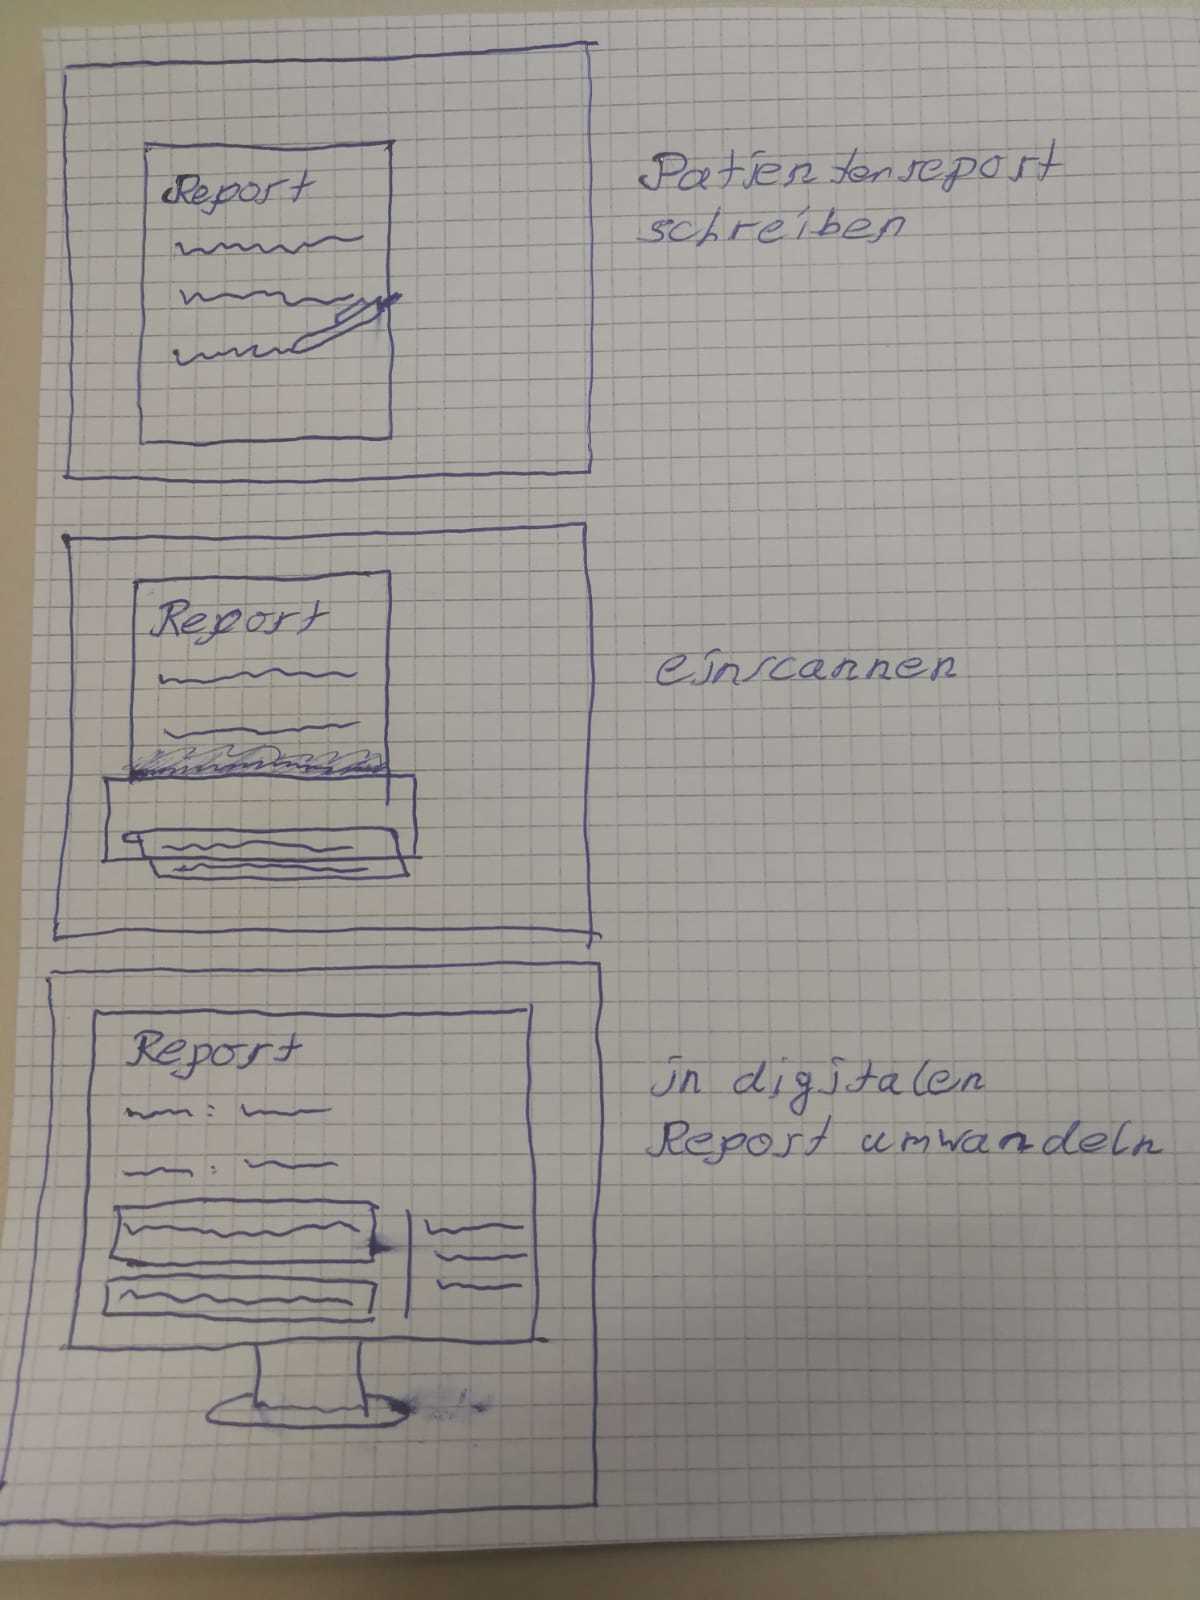 Report
Patientenreport
schreiben
Report
einscannen
Report
in digitalen
Report umwandeln